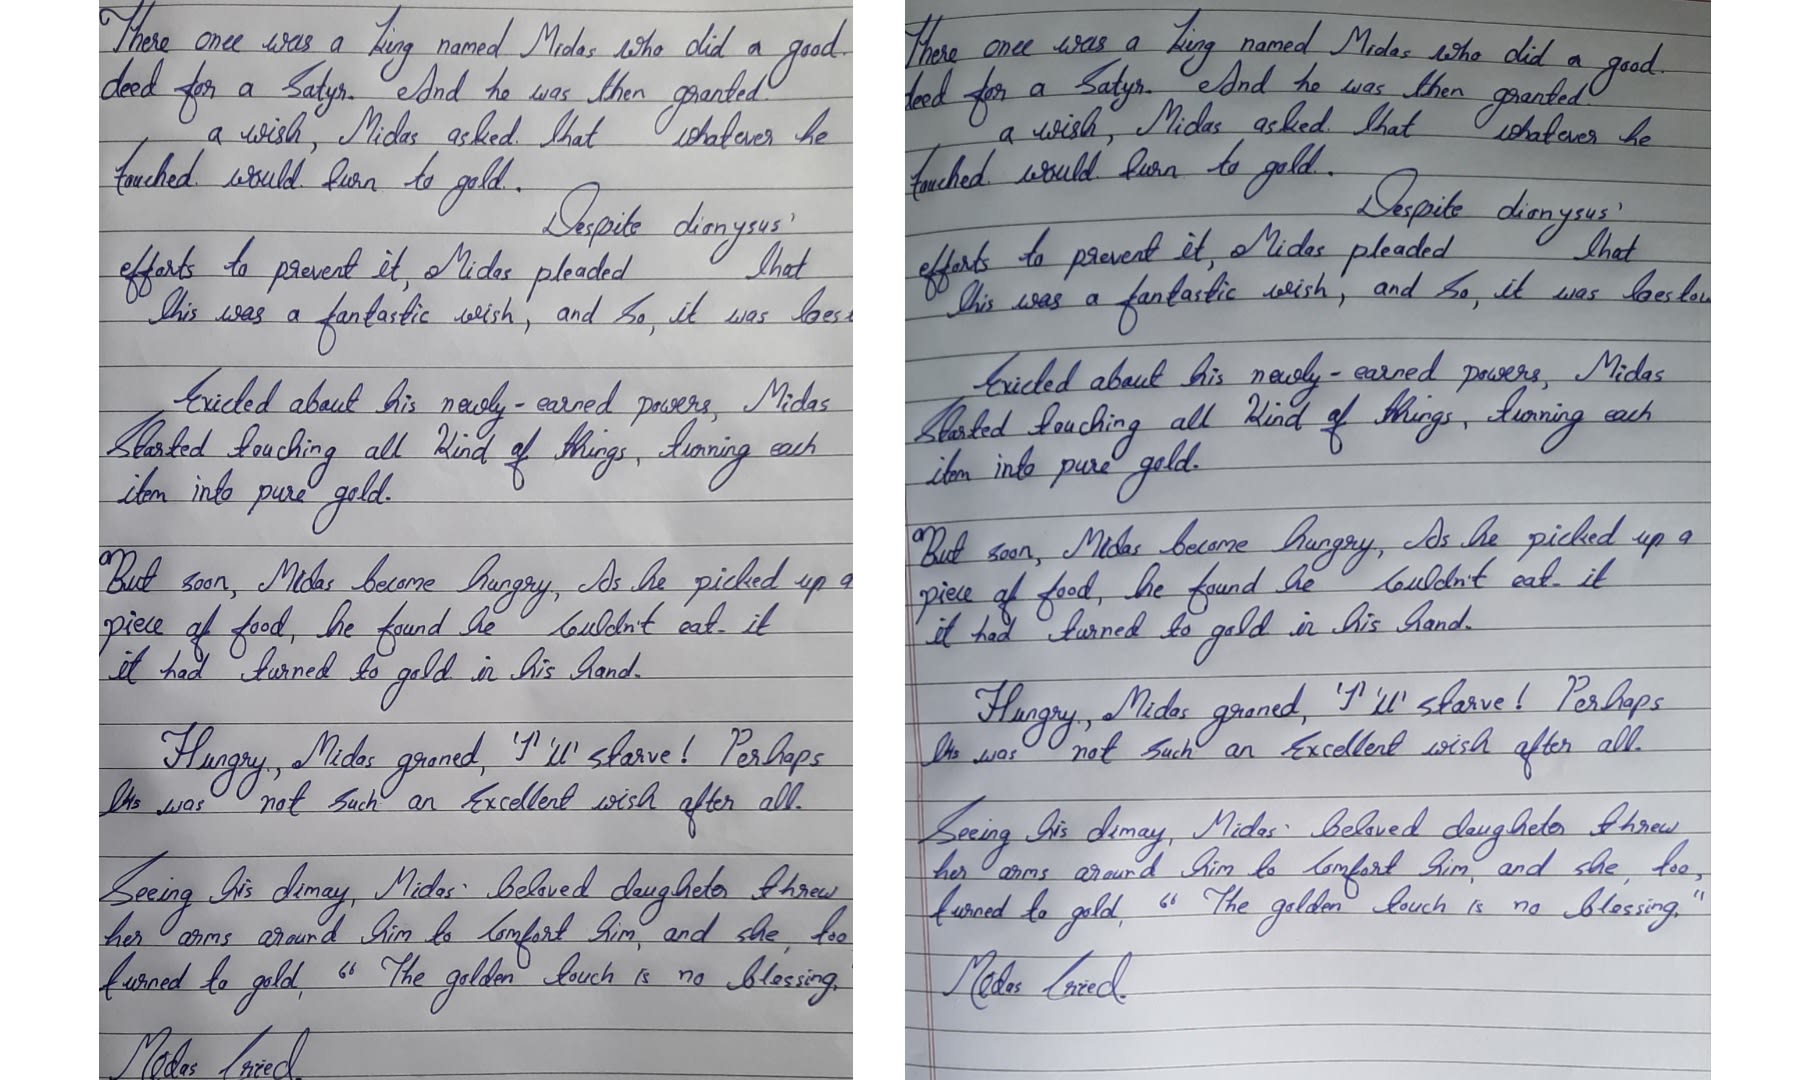 There once was a king named Midas who did a good.
deed for a Satyr. And he was then granted.
a wish, Midas asked. that whatever he
touched. would. turn to gold.
Despite dionysus'
efforts to prevent it, Midas pleaded that
this was a fantastic wish, and so, it was bes
Exicted about his newly-earned powers, Midas
Started touching all kind of things, turning each
item into pure gold.
But soon, Midas become hungry, As he picked up a
piece of food, he found he couldn't eat. it
it had turned to gold in his hand.
Hungry, Midas groned, 'I' 'll' starve! Perhaps
this was not such an Excellent wish after all.
Seeing his dimay, Midas' beloved daugheter threw
her arms around him to comfort him, and she, too
turned to gold, " The golden touch is no blessing,
Midas cried.
There once was a king named Midas who did a good.
deed for a Satyr. And he was then granted.
a wish, Midas asked. that whatever he
touched. would. turn to gold.
Despite dionysus'
efforts to prevent it, Midas pleaded that
this was a fantastic wish, and so, it was bestow
Exicted about his newly-earned powers, Midas
Started touching all kind of things, turning each
item into pure gold.
But soon, Midas become hungry, As he picked up a
piece of food, he found he couldn't eat. it
it had turned to gold in his hand.
Hungry, Midas groned, 'I' 'll' starve! Perhaps
this was not such an Excellent wish after all.
Seeing his dimay, Midas' beloved daugheter threw
her arms around him to comfort him, and she, too,
turned to gold, " The golden touch is no blessing,"
Midas cried.